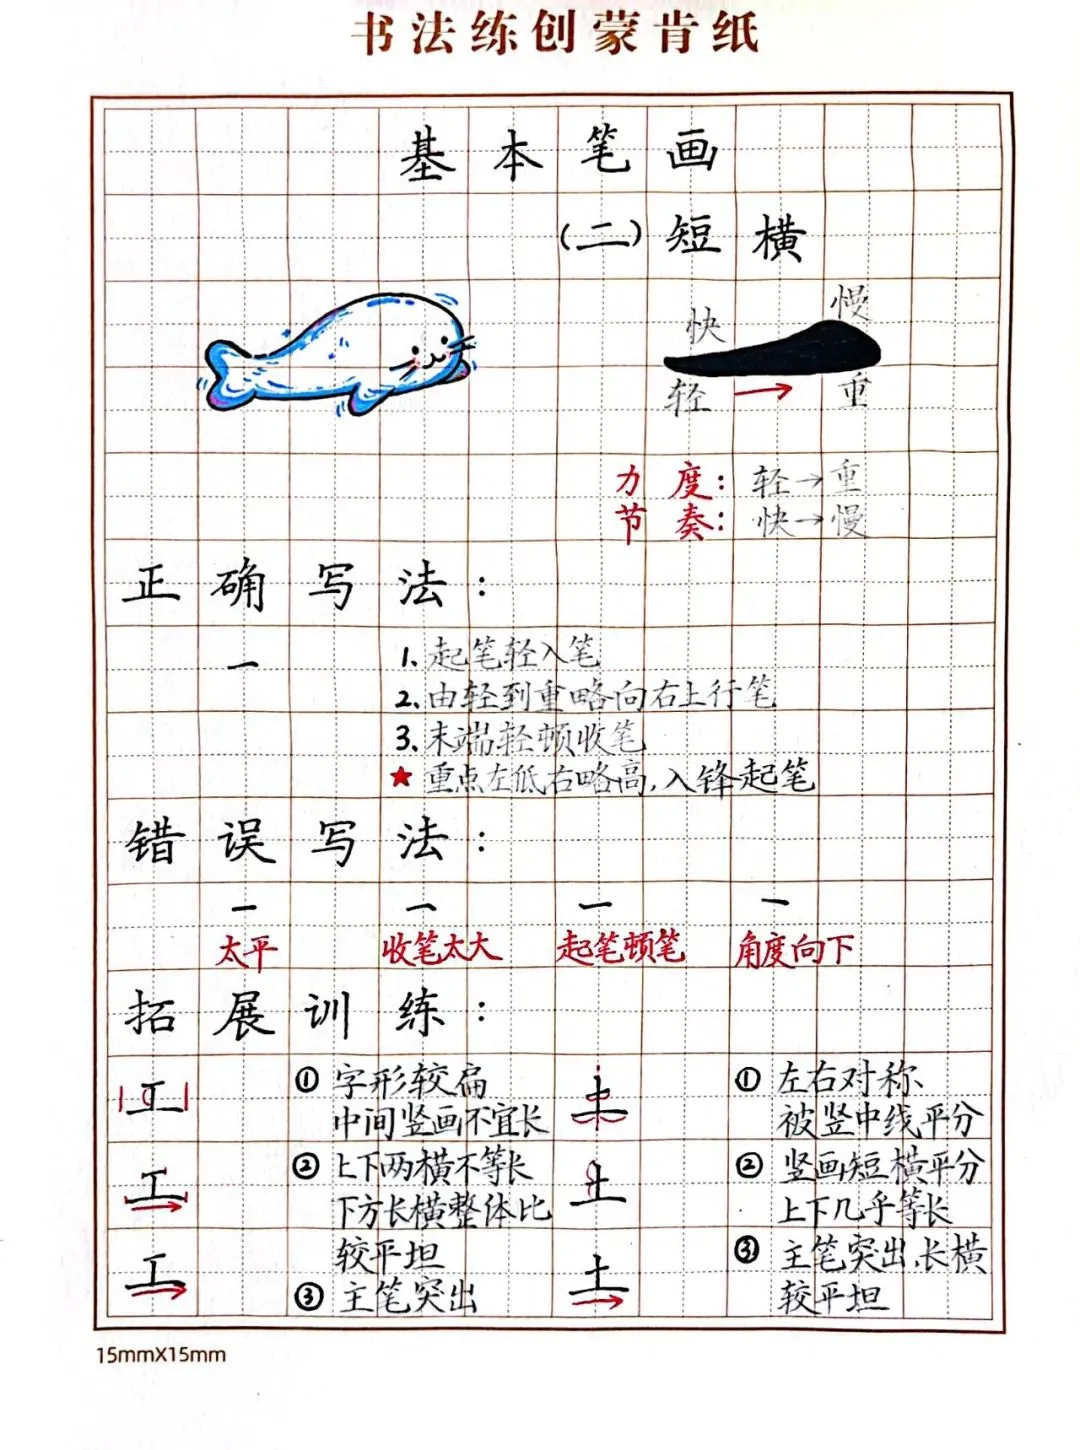 书法练创蒙肯纸
基本笔画
(二)短横
快 慢
轻 → 重
力度：轻→重
节奏：快→慢
正确写法：
一
1.起笔轻入笔
2.由轻到重略向右上行笔
3.末端轻顿收笔
★重点左低右略高,入锋起笔
错误写法：
一 一 一 一
太平 收笔太大 起笔顿笔 角度向下
拓展训练：
工
①字形较扁
中间竖画不宜长
工
②上下两横不等长
下方长横整体比
较平坦
工
③主笔突出
土
①左右对称
被竖中线平分
土
②竖画短横平分
上下几乎等长
土
③主笔突出,长横
较平坦
15mmX15mm